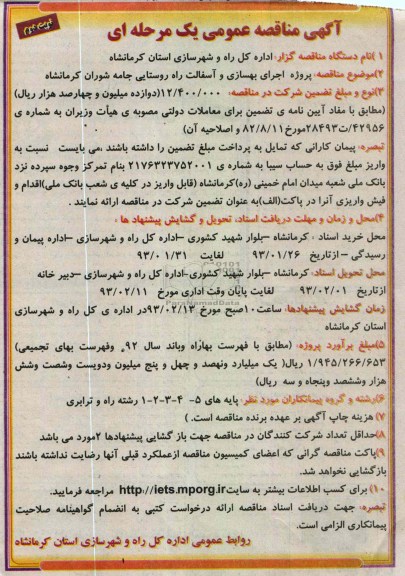 آگهی مناقصه عمومی یک مرحله ای
۱)نام دستگاه مناقصه گزار: اداره کل راه و شهرسازی استان کرمانشاه
۲)موضوع مناقصه: پروژه اجرای بهسازی و آسفالت راه روستایی جامه شوران کرمانشاه
۳)نوع و مبلغ تضمین شرکت در مناقصه: ۱۲/۴۰۰/۰۰۰ (دوازده میلیون و چهارصد هزار ریال)
(مطابق با مفاد آیین نامه ی تضمین برای معاملات دولتی مصوبه ی هیأت وزیران به شماره ی
۴۲۹۵۶/ت۲۸۴۹۳ه مورخ ۸۲/۸/۱۱ و اصلاحیه آن)
تبصره: پیمان کارانی که تمایل به پرداخت مبلغ تضمین را داشته باشند ،می بایست نسبت به
واریز مبلغ فوق به حساب سیبا به شماره ی ۲۱۷۶۳۲۳۷۵۲۰۰۱ بنام تمرکز وجوه سپرده نزد
بانک ملی شعبه میدان امام خمینی (ره)کرمانشاه (قابل واریز در کلیه ی شعب بانک ملی)اقدام و
فیش واریزی آنرا در پاکت(الف)به عنوان تضمین شرکت در مناقصه ارائه نمایند .
۴)محل و زمان و مهلت دریافت اسناد، تحویل و گشایش پیشنهاد ها :
محل خرید اسناد : کرمانشاه –بلوار شهید کشوری –اداره کل راه و شهرسازی –اداره پیمان و
رسیدگی – از تاریخ ۹۳/۰۱/۲۶ لغایت ۹۳/۰۱/۳۱
محل تحویل اسناد: کرمانشاه –بلوار شهید کشوری–اداره کل راه و شهرسازی –دبیر خانه
از تاریخ ۹۳/۰۲/۰۱ لغایت پایان وقت اداری مورخ ۹۳/۰۲/۱۱
زمان گشایش پیشنهادها: ساعت ۱۰صبح مورخ ۹۳/۰۲/۱۳در اداره ی کل راه و شهرسازی
استان کرمانشاه
۵)مبلغ برآورد پروژه: (مطابق با فهرست بهاراه وباند سال ۹۲ وفهرست بهای تجمیعی)
۱/۹۴۵/۲۶۶/۶۵۳ ریال( یک میلیارد ونهصد و چهل و پنج میلیون ودویست وشصت وشش
هزار وششصد وپنجاه و سه ریال)
۶)رشته و گروه پیمانکاران مورد نظر: پایه های ۵- ۴-۳-۲-۱ رشته راه و ترابری
۷) هزینه چاپ آگهی بر عهده برنده مناقصه است. )
۸)حداقل تعداد شرکت کنندگان در مناقصه جهت باز گشایی پیشنهادها ۲مورد می باشد
۹)پاکت مناقصه گرانی که اعضای کمیسیون مناقصه ازعملکرد قبلی آنها رضایت نداشته باشند
بازگشایی نخواهد شد.
۱۰) برای کسب اطلاعات بیشتر به سایت http://iets.mporg.ir مراجعه فرمایید.
تبصره: جهت دریافت اسناد مناقصه ارائه درخواست کتبی به انضمام گواهینامه صلاحیت
پیمانکاری الزامی است.
روابط عمومی اداره کل راه و شهرسازی استان کرمانشاه